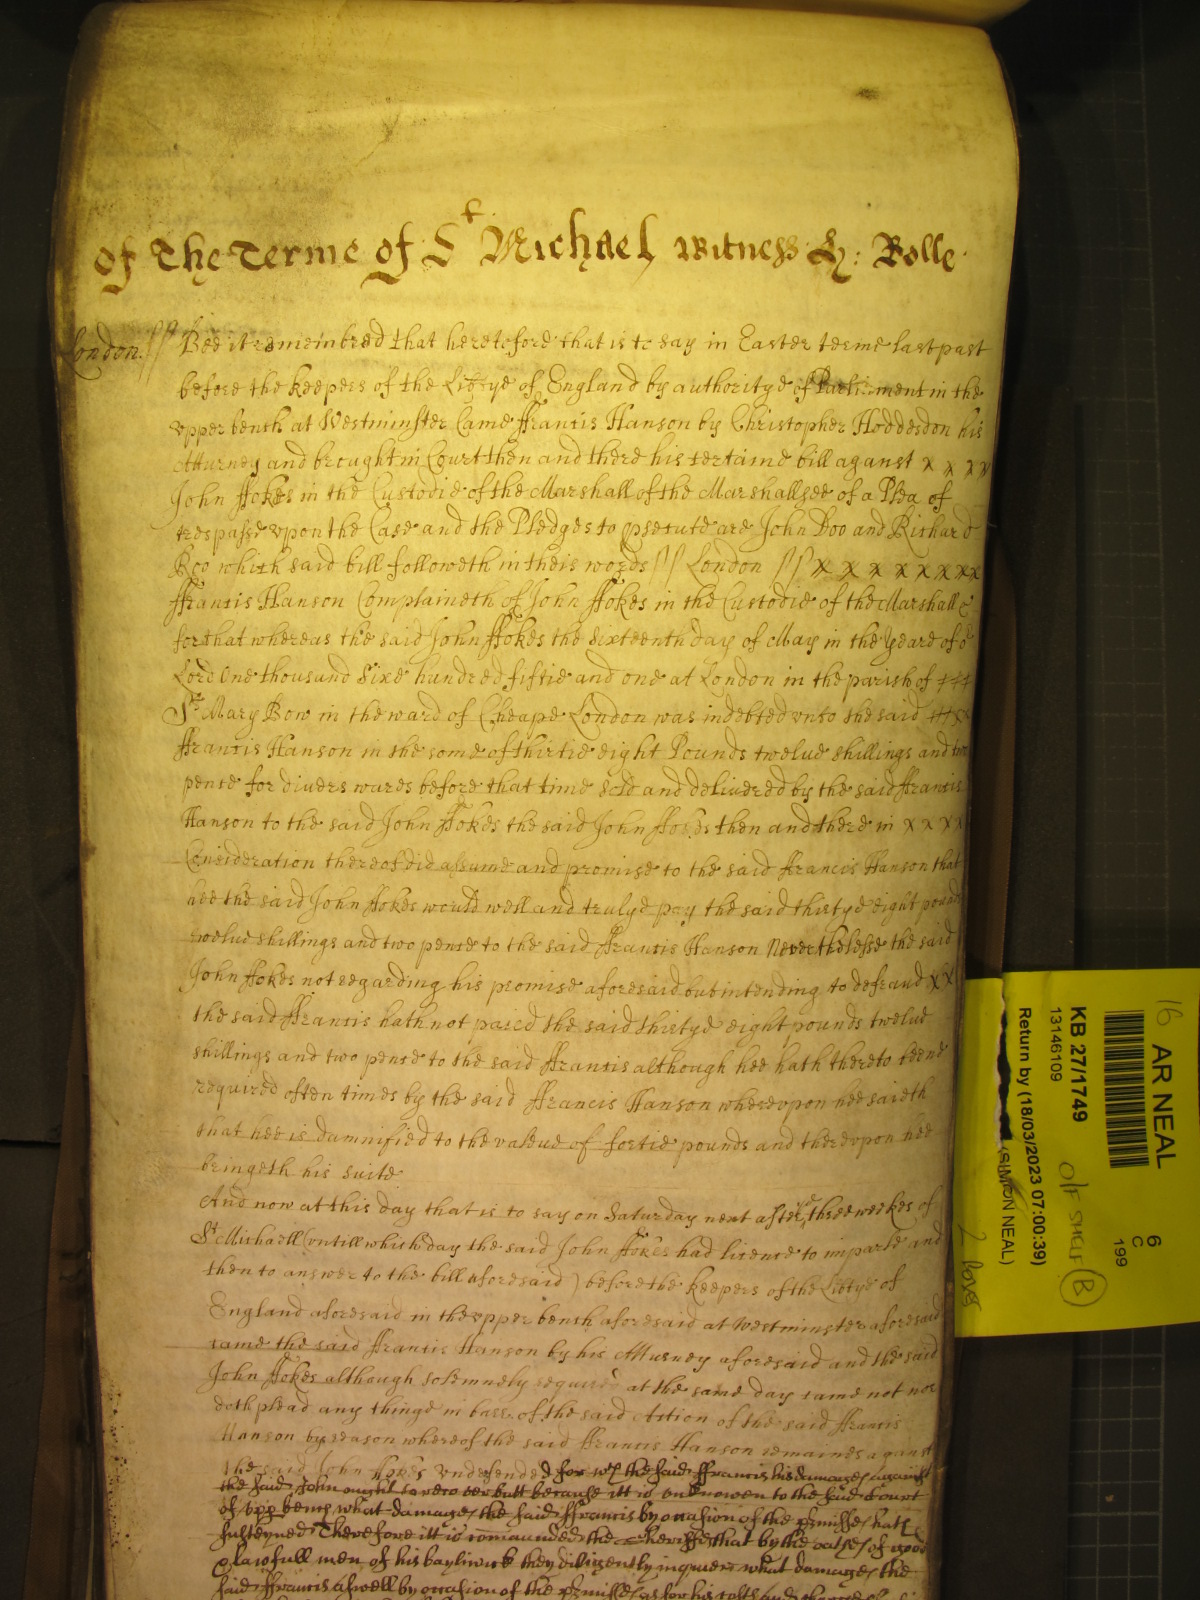 of The Terme of St Michael Witness &: Rolle
London // Bee it remembred that heretofore that is to say in Easter terme last past
before the keepers of the Libtye of England by authoritye of Parliament in the
vpper bench at Westminster Came ffrancis Hanson by Christopher Hoddesdon his
Atturney and brought in Court then and there his certaine bill against x x x x
John ffokes in the Custodie of the Marshall of the Marshallsee of a Plea of
trespasse vpon the Case and the Pledges to psecute are John Doo and Richard
Roo which said bill followeth in theis words // London // x x x x x x x x
ffrancis Hanson Complaineth of John ffokes in the Custodie of the Marshall &
for that whereas the said John ffokes the Sixteenth day of May in the yeare of o
Lord One thousand Sixe hundred fiftie and one at London in the parish of
St Mary Bow in the ward of Cheape London was indebted vnto the said
ffrancis Hanson in the some of thirtie eight Pounds twelue shillings and two
pence for divers wares before that time sold and delivered by the said ffrancis
Hanson to the said John ffokes the said John ffokes then and there in x x x x
Consideration thereof did assume and promise to the said ffrancis Hanson that
hee the said John ffokes would well and trulye pay the said thirtye eight pounds
twelue shillings and two pence to the said ffrancis Hanson Neverthelesse the said
John ffokes not regarding his promise aforesaid but intending to defraud x x
the said ffrancis hath not paied the said thirtye eight pounds twelue
shillings and two pence to the said ffrancis although hee hath thereto beene
required often times by the said ffrancis Hanson wherevpon hee saieth
that hee is damnified to the valeue of fortie pounds and therevpon hee
bringeth his suite
And now at this day that is to say on Saturday next after the three weekes of
St Michaell (vntill which day the said John ffokes had licence to imparle and
then to answer to the bill aforesaid) before the keepers of the Libtye of
England aforesaid in the vpper bench aforesaid at Westminster aforesaid
came the said ffrancis Hanson by his Atturney aforesaid and the said
John ffokes although solemnely required at the same day came not nor
doth plead any thinge in barr of the said Action of the said ffrancis
Hanson by reason whereof the said ffrancis Hanson remaines against
the said John ffokes vndefended for wch the said ffrancis his damages against
the said John ought to recover butt because itt is unknowen to the said Court
of vpp bench what damages the said ffrancis by occasion of the pmisses hath
susteyned Therefore itt is comaunded the Sheriffs that by the oathes of good
& lawfull men of his bayliwick they diligently inquire what damages the
said ffrancis aswell by occasion of the pmisses as for his costs and charges
16 AR NEAL
6
C
199
KB 27/1749
13146109
Return by (18/03/2023 07:00:39)
(SIMON NEAL)
O/F SHELF B